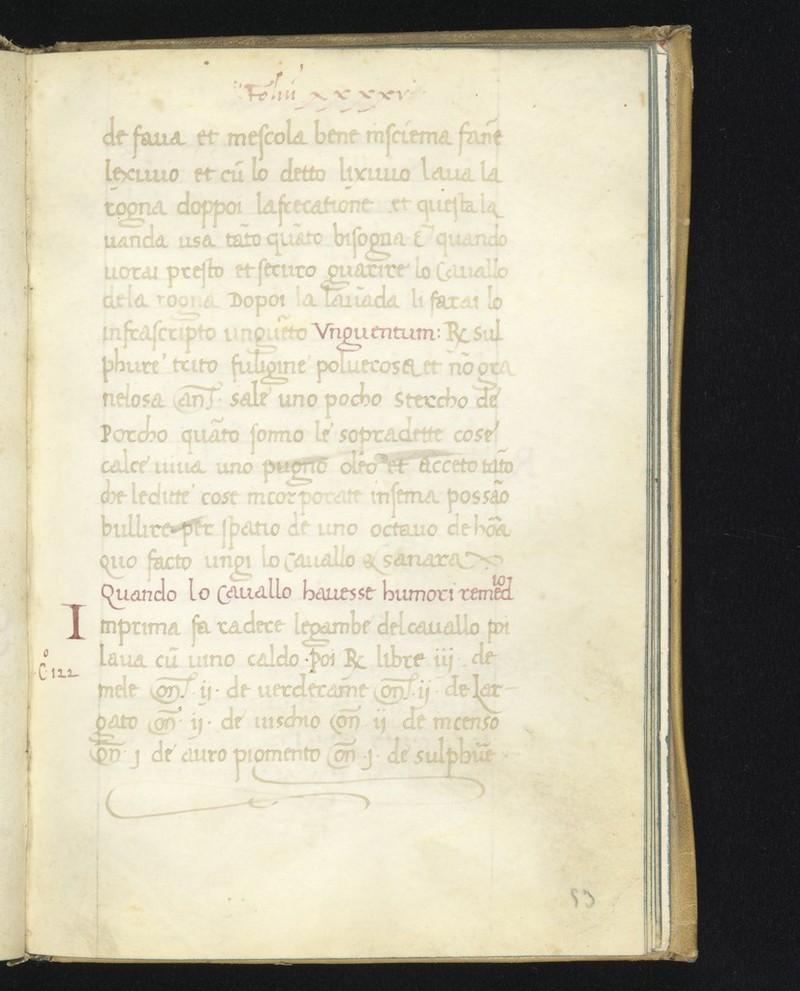 Foliũ xxxxv
de faua et mescola bene insciema fañe
lexiuuo et cũ lo detto lixuuo laua la
rogna doppoi la frecatione et questa la
uanda usa tãto quãto bisogna E quando
uorai presto et securo guarire lo Cauallo
de la rogna Dopoi la lauãda li farai lo
infrascripto unguẽto Vnguentum: ℞ sul
phure trito fuligine poluerosa et nõ gra
nelosa añ. sale uno pocho stercho de
Porcho quãto sonno le sopradette cose
calce uiua uno pugno oleo et acceto tãto
che le ditte cose incorporate insema possão
bullire per spatio de uno octauo de hõa
quo facto ungi lo Cauallo & sanara
Quando lo Cauallo hauesse humori remedio
Imprima fa radere le gambe del cauallo poi
C° 122
laua cũ uino caldo . Poi ℞ libre iij . de
mele oñ. ij . de uerderame oñ. ij . de Lar-
gato oñ. ij . de uischio oñ ij de incenso
oñ . j de auro piomento oñ . j . de sulphũe
53